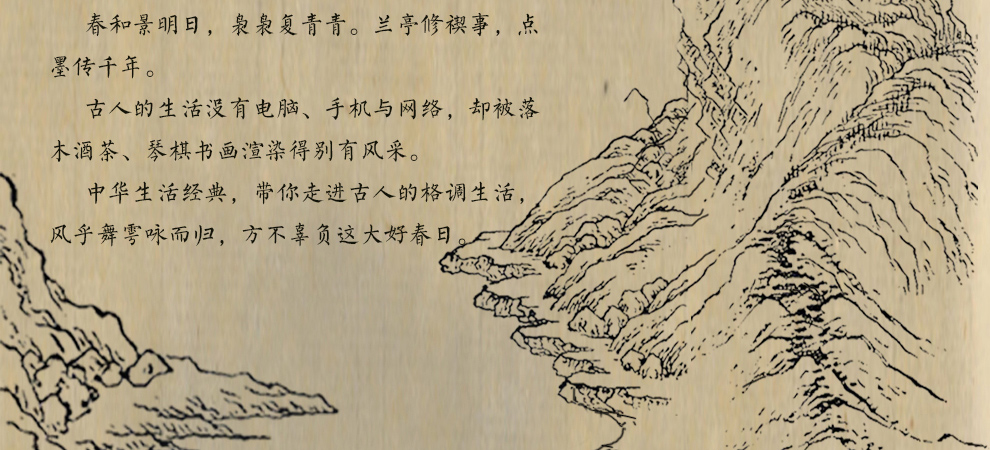 春和景明日，袅袅复青青。兰亭修禊事，点
墨传千年。
古人的生活没有电脑、手机与网络，却被落
木酒茶、琴棋书画渲染得别有风采。
中华生活经典，带你走进古人的格调生活，
风乎舞雩咏而归，方不辜负这大好春日。